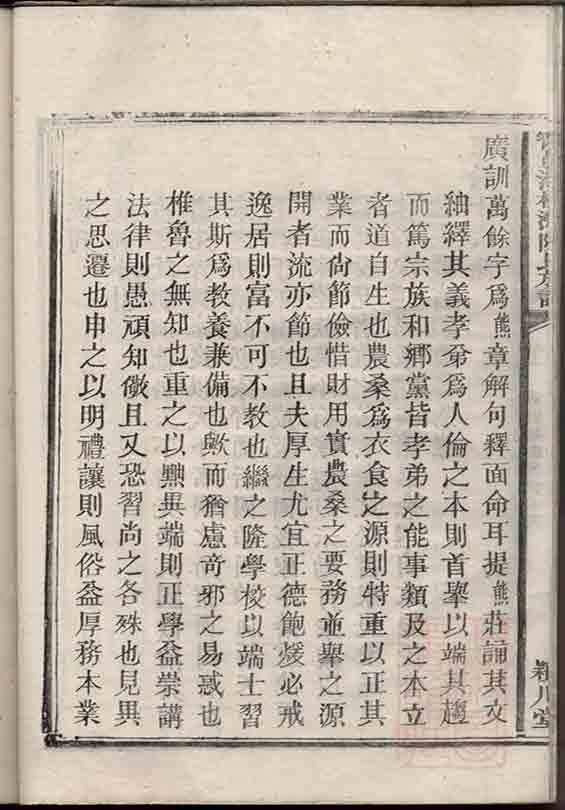 廣訓萬餘字爲熊章解句釋面命耳提熊莊誦其文
紬繹其義孝弟爲人倫之本則首舉以端其趨
而篤宗族和鄉黨皆孝弟之能事類及之本立
者道自生也農桑爲衣食之源則特重以正其
業而尙節儉惜財用實農桑之要務並舉之源
開者流亦節也且夫厚生尤宜正德飽煖必戒
逸居則富不可不教也繼之隆學校以端士習
其斯爲教養兼備也歟而猶慮奇邪之易惑也
椎魯之無知也重之以黜異端則正學益崇講
法律則愚頑知儆且又恐習尚之各殊也見異
之思遷也申之以明禮讓則風俗益厚務本業
陳氏族譜
潁川堂